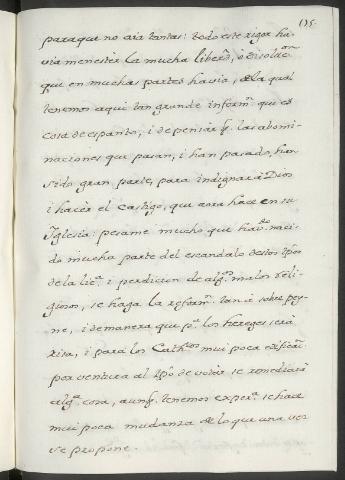 135.
paraque no aia tantas: todo este rigor ha-
via menester la mucha libertd, i disoluon
que en muchas partes havia, de la qual
tenemos aqui tan grande informn que es
cosa de espanto, i de pensar q. las abomi-
naciones que pasan, i han pasado, han
sido gran parte, para indignar à Dios
i hacer el castigo, que aora hace en su
Iglesia: pesame mucho que havdo naci-
do mucha parte del escandalo destos tpos
de la lica i perdicion de algs malos reli-
giosos, se haga la reformn tan sobre pey-
ne, i demanera que pa los hereges serà
risa, i para los Cathcos mui poca
por ventura al tpo de votar se remediarà
alga cosa, aunq. tenemos expera se hace
mui poca mudanza de lo que una vez
se propone.